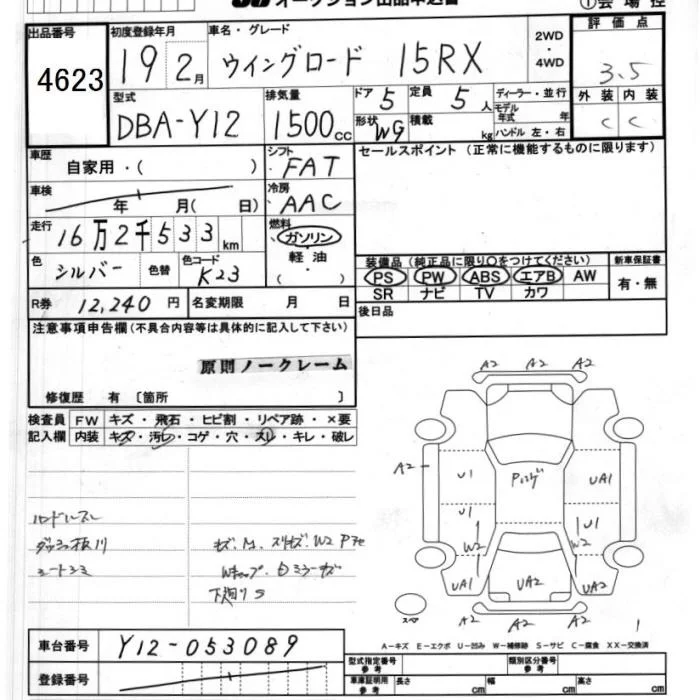 オークション出品申込書
①会場控
出品番号
4623
初度登録年月
19 2月
車名・グレード
ウイングロード 15RX
2WD
・
4WD
評価点
3.5
型式
DBA-Y12
排気量
1500cc
ドア 5
定員 5人
形状 WG
積載 kg
ディーラー・並行
モデル年式 年
ハンドル 左・右
外装 内装
C C
車歴
自家用・( )
シフト
FAT
セールスポイント (正常に機能するものに限ります)
車検
年 月( 日)
冷房
AAC
走行
16万2千533km
燃料
ガソリン
軽油
( )
色
シルバー
色替
色コード
K23
装備品 (純正品に限り○をつけてください)
PS PW ABS エアB AW
SR ナビ TV カワ
新車保証書
有・無
R券 12,240円
名変期限 月 日
後日品
注意事項申告欄(不具合内容等は具体的に記入して下さい)
原則ノークレーム
修復歴 有 〔箇所 〕
検査員記入欄
FW キズ・飛石・ヒビ割・リペア跡・×要
内装 キズ・汚レ・コゲ・穴・スレ・キレ・破レ
A2 A2 A2
A2
U1 UA1
U1 U1
W2 W2
UA1 UA2 UA1
A2 A2 A2
スペア
キズ.M.スリキズ.W2
下廻りS
車台番号
Y12-053089
登録番号
A-キズ E-エクボ U-凹み W-補修跡 S-サビ C-腐食 XX-交換済
型式指定番号 参考
類別区分番号 参考
車庫証明用 参考
長さ cm 幅 cm 高さ cm